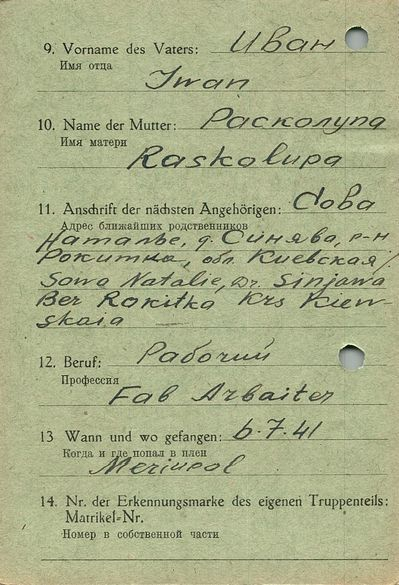 9. Vorname des Vaters: Иван
Имя отца
Iwan
10. Name der Mutter: Расколупа
Имя матери
Raskolupa
11. Anschrift der nächsten Angehörigen: Сова
Адрес ближайших родственников
Наталье, д. Синява, р-н
Рокитка, обл. Киевская/
Sowa Natalie, Dr. Sinjawa
Ber Rakitka Krs Kiew-
skaia
12. Beruf: Рабочий
Профессия
Fab Arbaiter
13 Wann und wo gefangen: 6.7.41
Когда и где попал в плен
Meriupol
14. Nr. der Erkennungsmarke des eigenen Truppenteils:
Matrikel-Nr.
Номер в собственной части